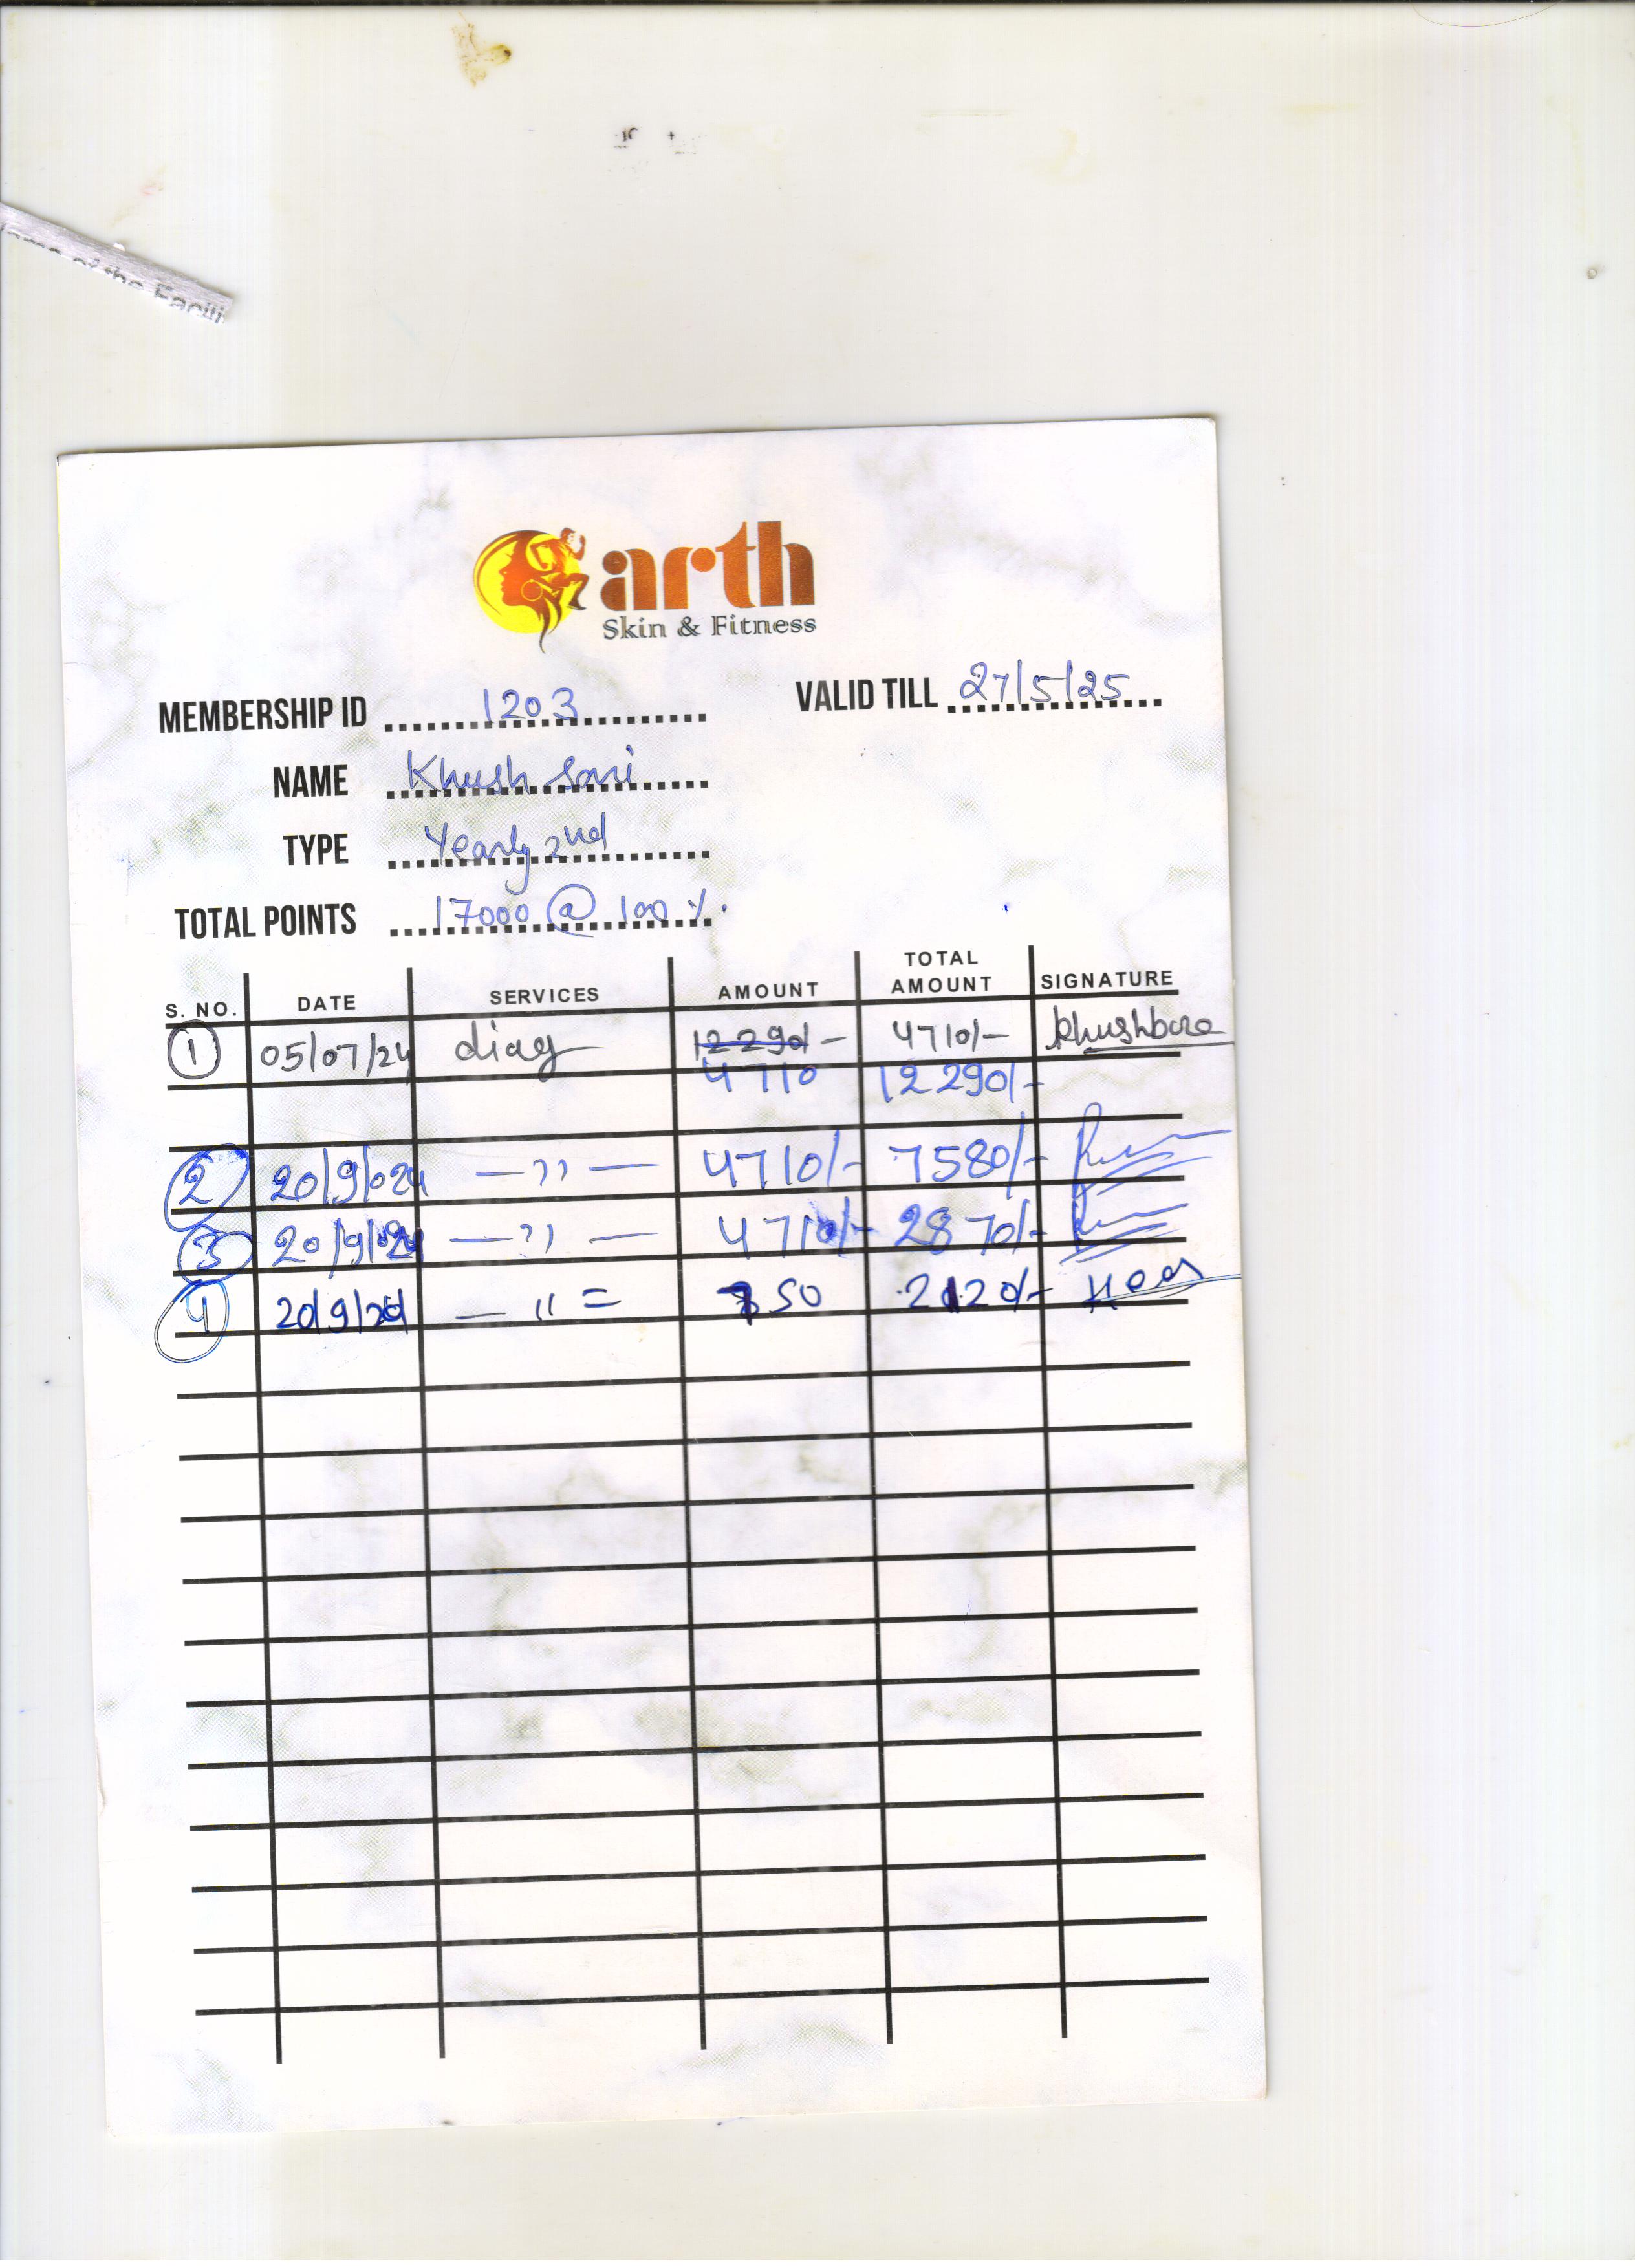 ame of the Facili
arth
Skin & Fitness
MEMBERSHIP ID 1203 VALID TILL 27/5/25
NAME Khush Soni
TYPE Yearly 2nd
TOTAL POINTS 17000 @ 100 %.
S. NO. DATE SERVICES AMOUNT TOTAL AMOUNT SIGNATURE
1 05/07/24 diag 12290/- 4710/-
4710 12290/-
2 20/9/024 — ,, — 4710/- 7580/-
3 20/9/024 — ,, — 4710/- 2870/-
4 20/9/24 — ,, = 750 2120/-